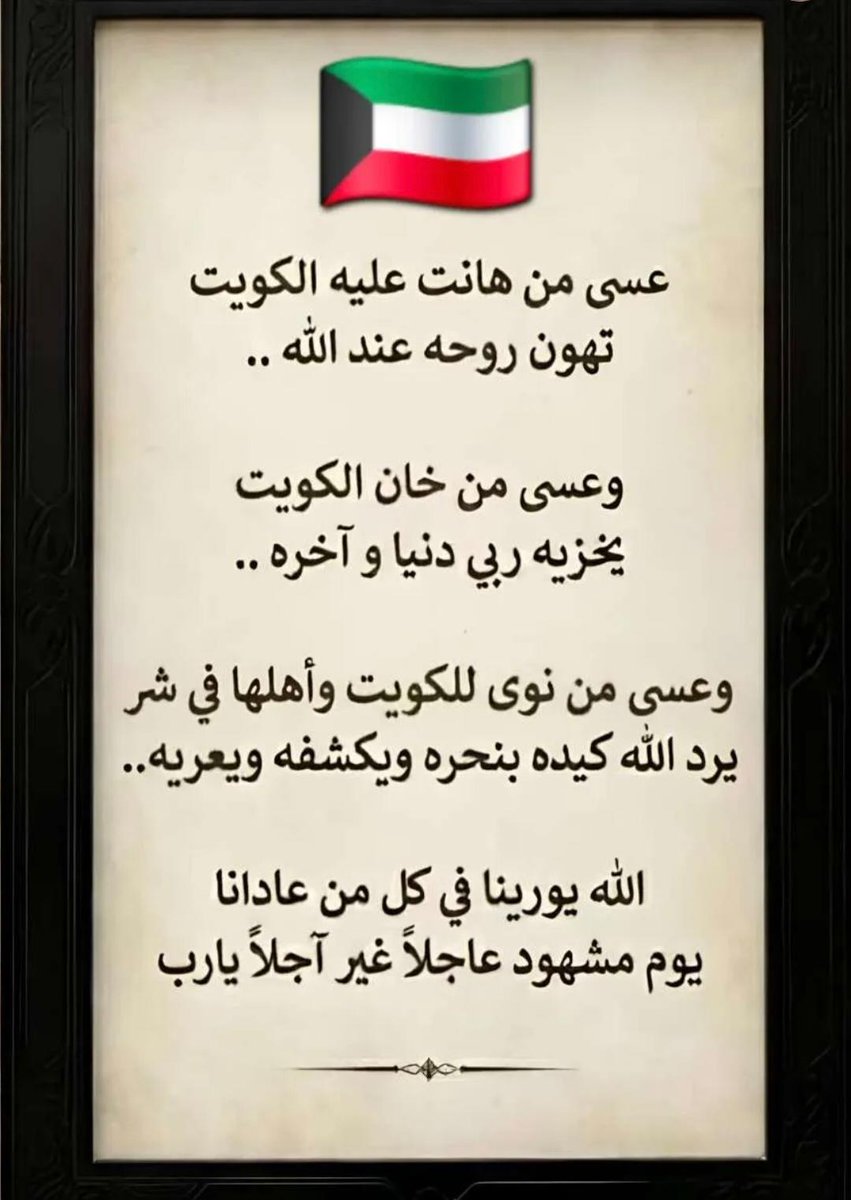 عسى من هانت عليه الكويت
تهون روحه عند الله ..
وعسى من خان الكويت
يخزيه ربي دنيا و آخره ..
وعسى من نوى للكويت وأهلها في شر
يرد الله كيده بنحره ويكشفه ويعريه..
الله يورينا في كل من عادانا
يوم مشهود عاجلاً غير آجلاً يارب